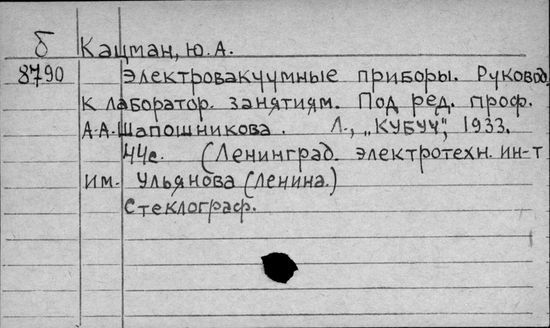 б Кацман, Ю.А.
8790 Электровакуумные приборы. Руковод.
к лаборатор. занятиям. Под ред. проф.
А.А.Шапошникова. Л., „КУБУЧ", 1933.
44с. (Ленинград. электротехн. ин-т
им. Ульянова (Ленина.)
Стеклограф.